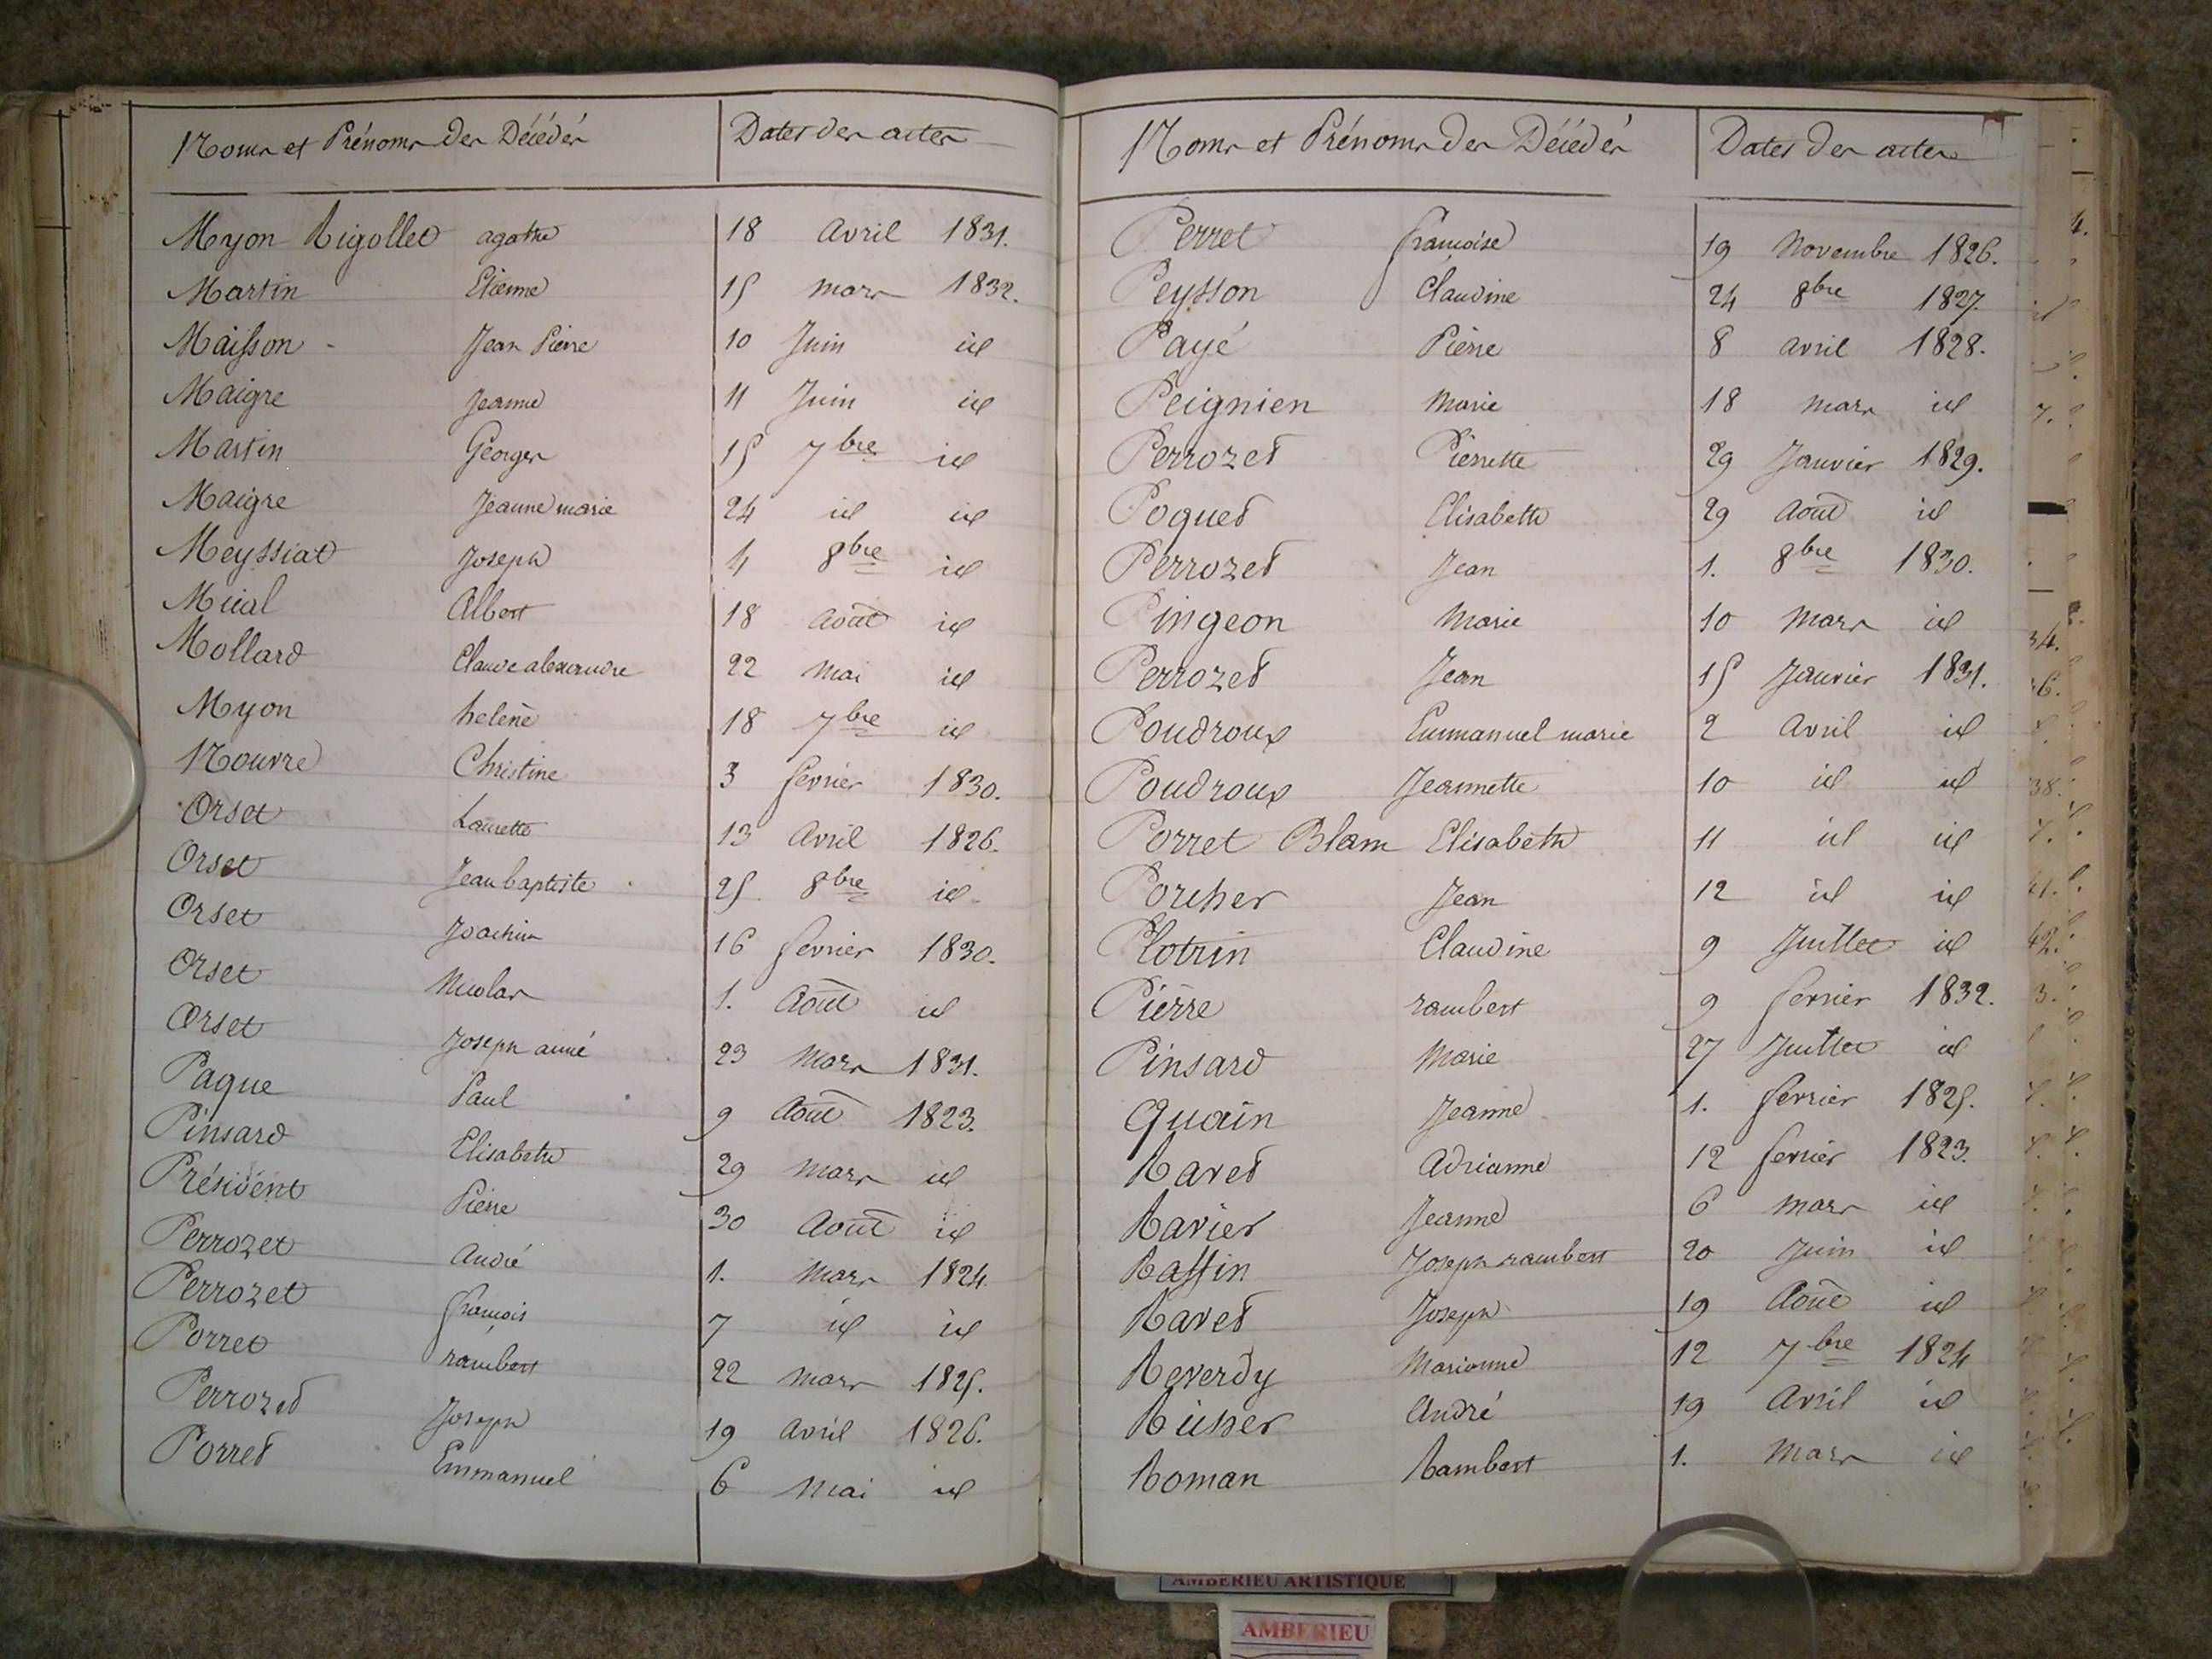 Noms et Prénoms des Décédés Dates des actes
Myon Rigollet agathe 18 Avril 1831.
Martin Etienne 15 mars 1832.
Maisson - Jean Pierre 10 Juin id
Maigre Jeanne 11 Juin id
Martin Georges 15 7bre id
Maigre Jeanne marie 24 id id
Meyssiat Joseph 4 8bre id
Mical Albert 18 Août id
Mollard Claude alexandre 22 Mai id
Myon helene 18 7bre id
Nouvre Christine 3 fevrier 1830.
Orset Laurette 13 Avril 1826.
Orset Jean baptiste 25 8bre id
Orset Joachim 16 fevrier 1830.
Orset Nicolas 1. Août id
Orset Joseph aimé 23 Mars 1831.
Paque Paul 9 Août 1823.
Pinsard Elisabeth 29 Mars id
Présidént Pierre 30 Août id
Perrozet André 1. Mars 1824.
Perrozet françois 7 id id
Porret rambert 22 Mars 1825.
Perrozet Joseph 19 Avril 1826.
Porret Emmanuel 6 Mai id
Noms et Prénoms des Décédés Dates des actes
Perret françoise 19 Novembre 1826.
Peysson Claudine 24 8bre 1827.
Payé Pierre 8 avril 1828.
Peignien Marie 18 Mars id
Perrozet Pierrette 29 Janvier 1829.
Poguet Elisabeth 29 Août id
Perrozet Jean 1. 8bre 1830.
Pingeon Marie 10 Mars id
Perrozet Jean 15 Janvier 1831.
Poudroux Emmanuel marie 2 Avril id
Poudroux Jeannette 10 id id
Porret Blam Elisabeth 11 id id
Porcher Jean 12 id id
Plotrin Claudine 9 Juillet id
Pierre rambert 9 fevrier 1832.
Pinsard Marie 27 Juillet id
Quain Jeanne 1. fevrier 1825.
Ravet Adrianne 12 fevrier 1823.
Ravier Jeanne 6 Mars id
Raffin Joseph rambert 20 Juin id
Ravet Joseph 19 Août id
Reverdy Marianne 12 7bre 1824
Richer André 19 Avril id
Roman Rambert 1. Mars id
AMBERIEU ARTISTIQUE
AMBERIEU